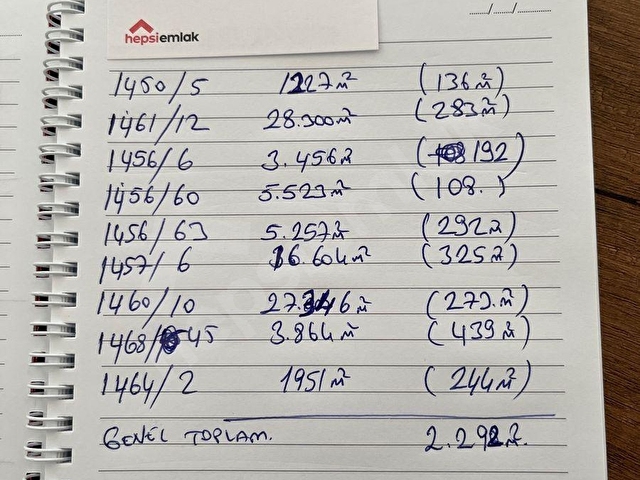 ..../...../............
hepsiemlak
1450/5 1227 m² (136 m²)
1461/12 28.300 m² (283 m²)
1456/6 3.456 m² (192)
1456/60 5.523 m² (108.)
1456/63 5.257 m² (292 m²)
1457/6 16.604 m² (325 m²)
1460/10 27.346 m² (273. m²)
1468/45 3.864 m² (439 m²)
1464/2 1951 m² (244 m²)
GENEL TOPLAM. 2.292 m².